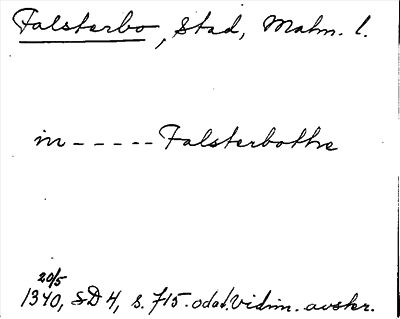 Falsterbo, Stad, Malm. l.
in ----- Falsterbothe
20/5
1340, SD 4, s. 715. odat. Vidim. avskr.